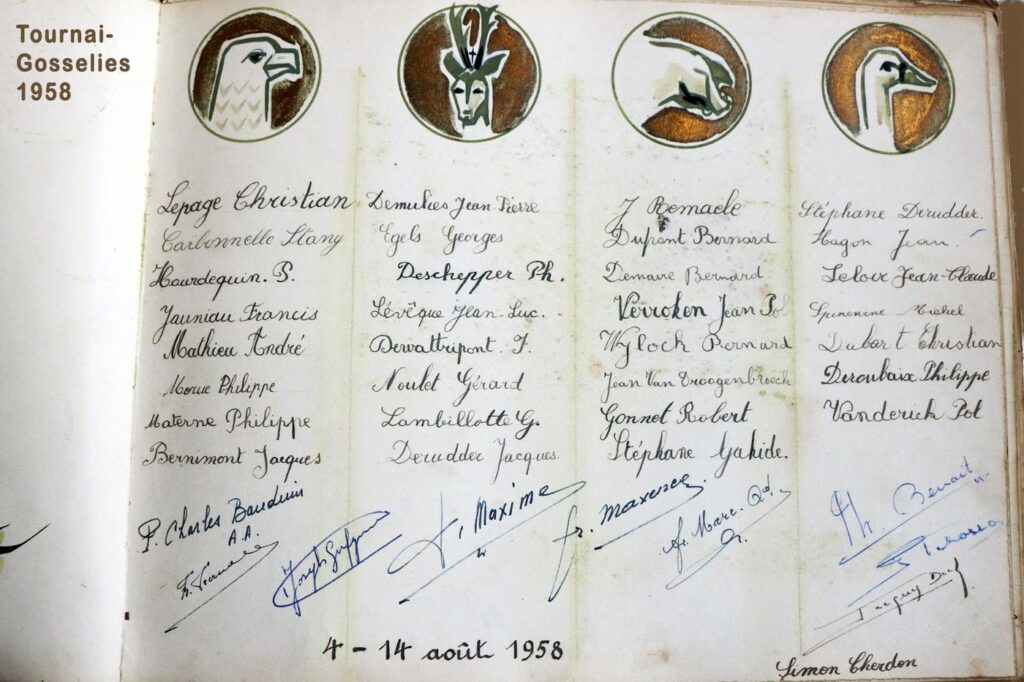 Tournai-
Gosselies
1958
Lepage Christian
Carbonnelle Stany
Hourdequin. P.
Jauniau Francis
Mathieu André
Morue Philippe
Materne Philippe
Bernimont Jacques
Demulies Jean-Pierre
Egels Georges
Deschepper Ph.
Lévêque Jean-Luc.
Dervattripont. F.
Noulet Gérard
Lambillotte G.
Derudder Jacques
J Remacle
Dupont Bernard
Demaire Bernard.
Verroken Jean Pol
Wylock Bernard
Jean Van Droogenbroeck
Gonnet Robert
Stéphane Gahide.
Stéphane Derudder.
Hagon Jean.
Leloir Jean-Claude
Michel
Dubart Christian
Deroubaix Philippe
Vanderick Pol
P. Charles Bauduin
A.A.
Fr.
Joseph
Fr. Maxime
fr. maxence.
fr. Marc.
Ph. Benoit
4 - 14 août 1958
Simon Cherdon